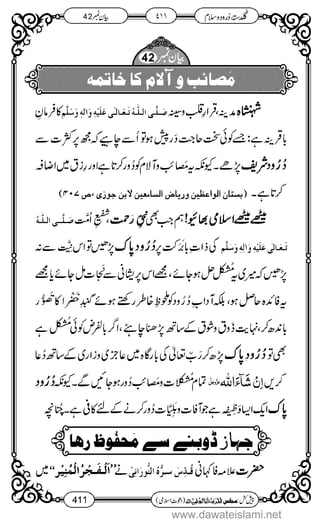 گلدستہ دُرود و سلام ٤١١ بیان نمبر 42
بیان نمبر 42
مَصائب و آلام کا خاتمہ
شہنشاہِ مدینہ، قرارِ قلب و سینہ صَلَّى اللهُ تَعَالٰى عَلَيْهِ وَاٰلِهٖ وَسَلَّم کا فرمانِ
با قرینہ ہے: جسے کوئی سخت حاجت درپیش ہو تو اُسے چاہیے کہ مجھ پر کثرت سے
دُرُود شریف پڑھے۔ کیونکہ یہ مَصائب و آلام کو دور کرتا ہے اور رِزق میں اضافہ
کرتا ہے۔ (بستان الواعظین وریاض السامعین لابن جوزی، ص ٤٠٧)
میٹھے میٹھے اسلامی بھائیو! ہم جب بھی نبیِّ رَحمت، شفیعِ اُمَّت صَلَّى اللهُ
تَعَالٰى عَلَيْهِ وَاٰلِهٖ وَسَلَّم کی ذاتِ بابرکات پر دُرُودِ پاک پڑھیں تو اس نیَّت سے نہ
پڑھیں کہ میری یہ مشکل حل ہوجائے، مجھے اس پریشانی سے نَجات مل جائے یا مجھے
یہ فائدہ حاصل ہو، بلکہ آدابِ دُرود کو ملحوظِ خاطِر رکھتے ہوئے گنبدِ خَضرا کا تَصَوُّر
باندھ کر، نہایت ذَوق و شوق کے ساتھ پڑھنا چاہئے، اگر بالفرض کوئی مشکل ہے
بھی تو دُرُودِ پاک پڑھ کر ربّ تعالیٰ کی بارگاہ میں عاجِزی و زاری کے ساتھ دُعا
کریں اِنْ شَاءَ اللہ عَزَّوَجَلَّ تمام مُشکلات و مَصائب دور ہوجائیں گے۔ کیونکہ دُرُودِ
پاک ایک ایسا وظیفہ ہے جو آفات و بَلِیّات کو دُور کرنے کے لئے کافی ہے۔ چُنانچِہ
جہاز ڈوبنے سے مَحفُوظ رھا
حضرت علامہ فاکہانی قُدِّسَ سِرُّہُ النُّورَانِی نے ”اَلْفَجْرُ الْمُنِیْر“ میں
411 پیش کش: مجلس اَلْمَدِیْنَۃُ الْعِلْمِیَّۃ (دعوتِ اسلامی)
www.dawateislami.net